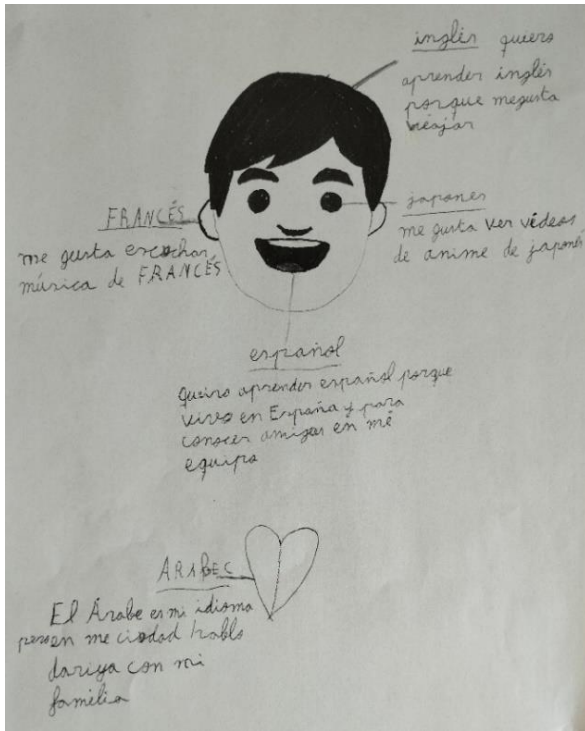 inglés quiero
aprender inglés
porque megusta
viajar
FRANCÉS
me gusta escuchar
música de FRANCÉS
japones
me gusta ver vídeos
de anime de japonés
español
Queiro aprender español porque
vivo en España y para
conocer amigos en mé
equipo
ARABEC
El Árabe es mi idioma
pero en me ciodad hablo
dariya con mi
familia